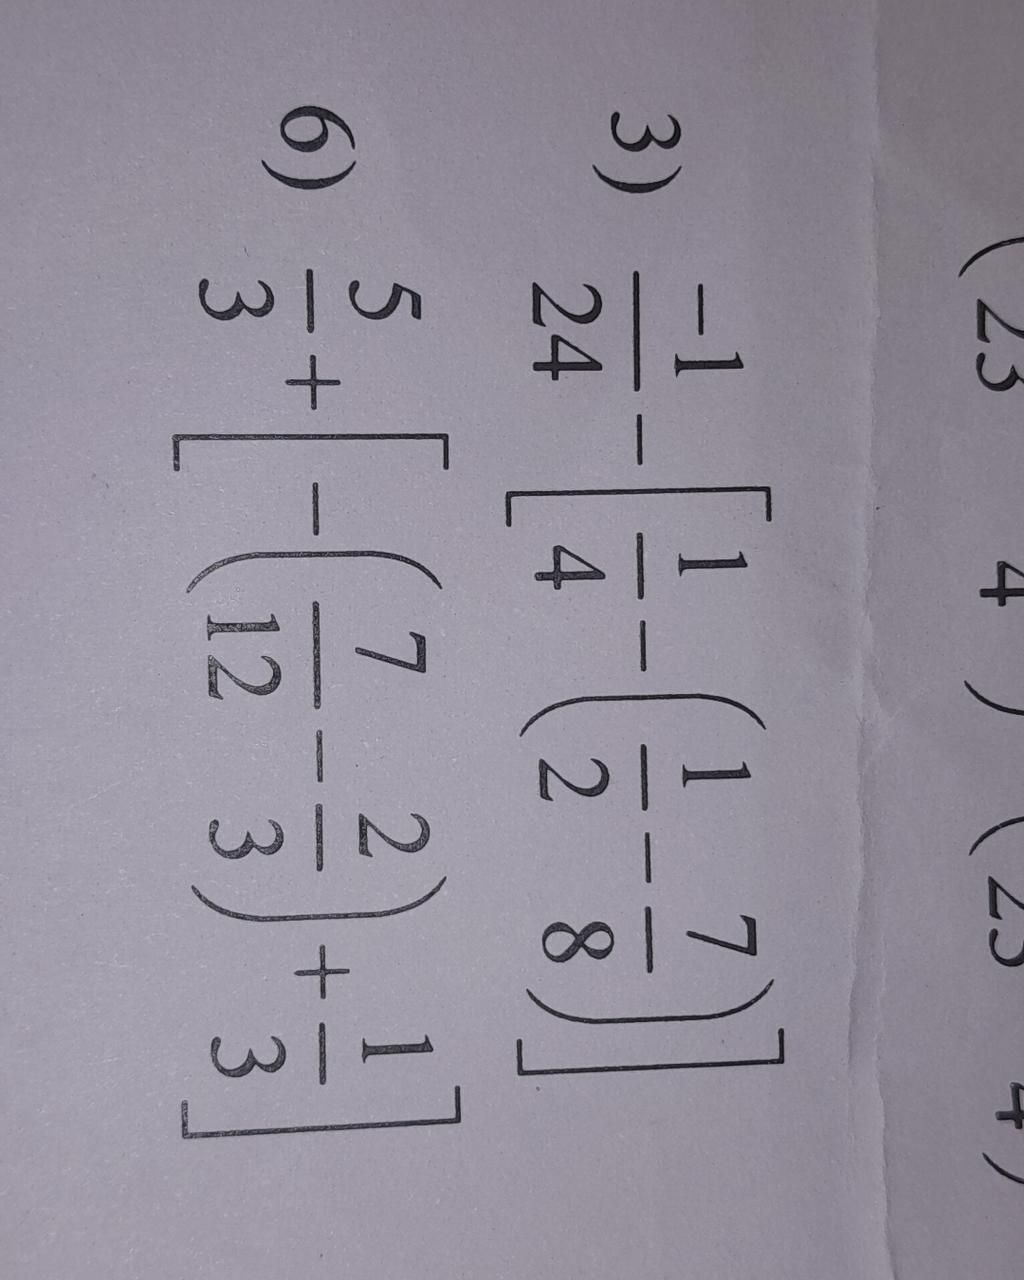 (23 4) (23 4)
3) -1/24 - [1/4 - (1/2 - 7/8)]
6) 5/3 + [-(7/12 - 2/3) + 1/3]